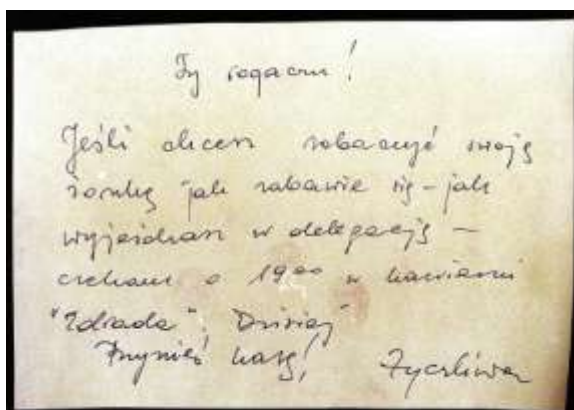 Ty rogaczu!
Jeśli chcesz zobaczyć swoją
żonkę jak zabawia się - jak
wyjeżdżasz w delegację -
czekam o 19⁰⁰ w kawiarni
"Zdrada". Dzisiaj
Przynieś kasę! Życzliwa